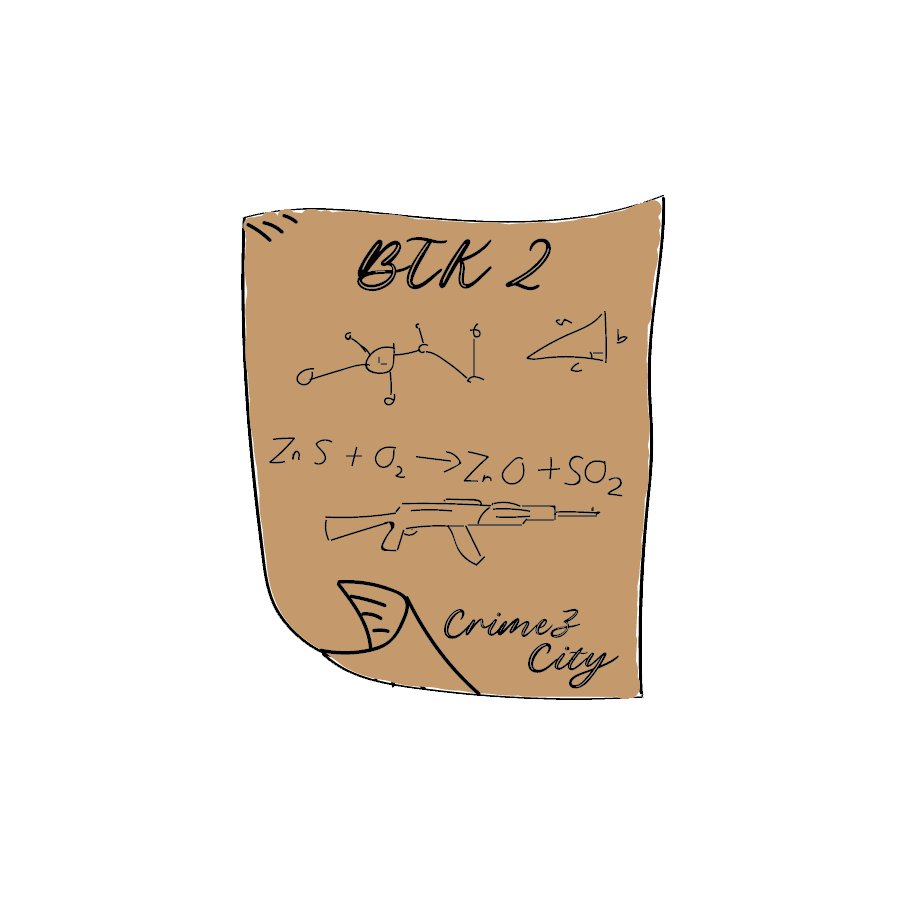 BTK 2
a b c
ZnS + O₂ → ZnO + SO₂
Crime3
City